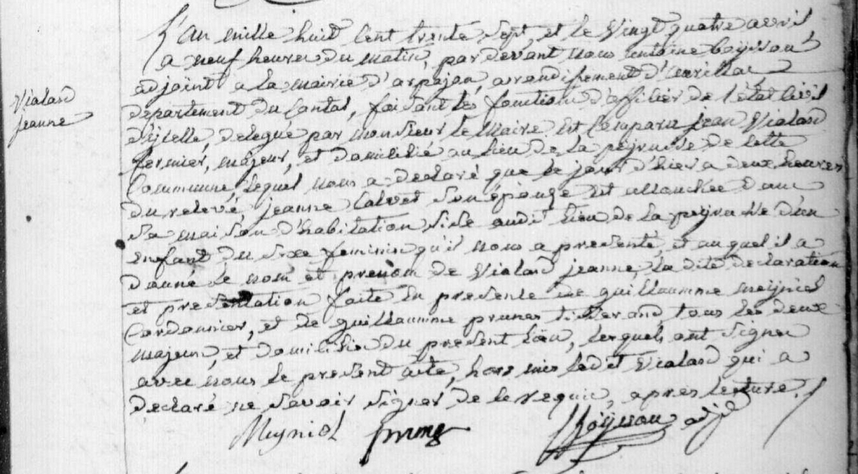 L'an mille huit cent trente sept, et le vingt quatre avril
a neuf heures du matin, pardevant nous antoine Boyssou
adjoint a la mairie d'arpajon arrondissement d'aurillac
Vialard
Jeanne
departement du Cantal, faisant les fonction d'officier de l'état civil
d'ycelle, delegue par monsieur le Maire est Comparu jean Vialard
fermier, majeur, et domicilié au lieu de la peyrusse de cette
Commune lequel nous a declaré que le jour d'hier a deux heures
du relevé, jeanne Calvet son épouse est accouchée dans
sa maison d'habitation sise audit lieu de la peyrusse d'un
enfant du sexe feminin qu'il nous a presenté, et auquel il a
donné le nom et prenom de Vialard jeanne, la dite declaration
et presentation faite en presente de guillaumme meyniel
Cordonnier, et de guillaumme prunet tisserand tous les deux
majeur, et domicilié du present lieu, lesquels ont signer
avec nous le present acte, hors mis ledit Vialard qui a
declaré ne savoir signer de le requis, apres lecture.
Meyniel Boyssou adj